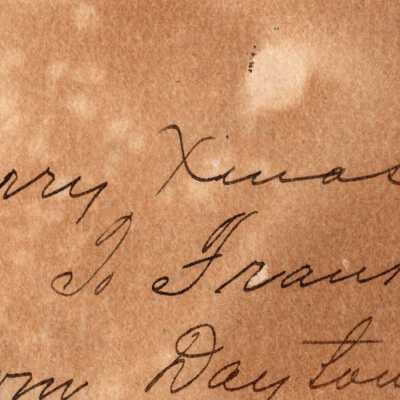 rry Xmas
To Frank
om Dayton